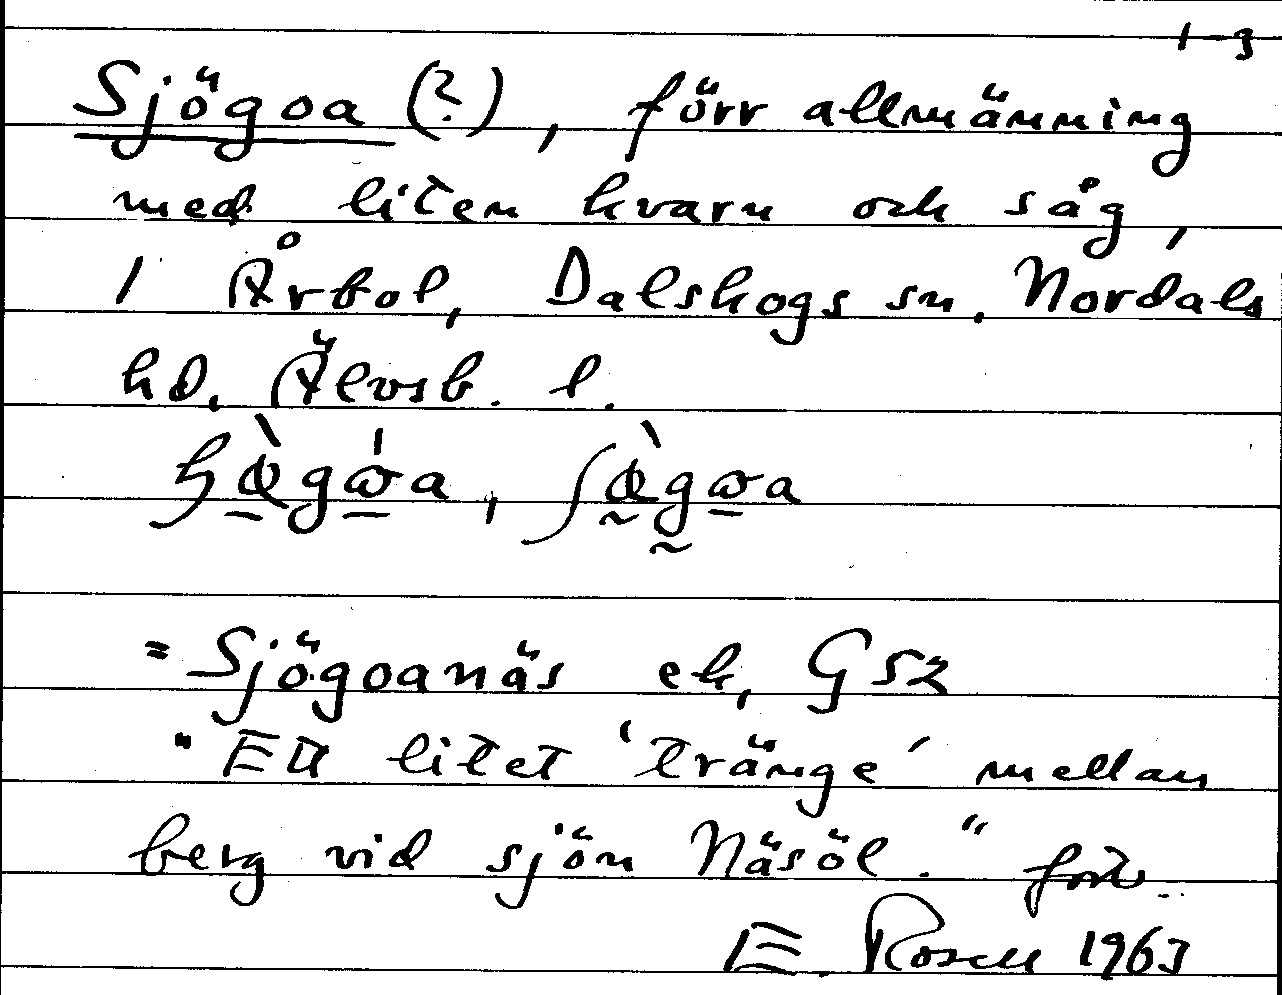 1-3
Sjögoa (?), förr allmänning
med liten kvarn och såg,
i Årbol, Dalskogs sn. Nordals
hd. Älvsb. l.
= Sjögoanäs ek, G 52
"Ett litet 'tränge' mellan
berg vid sjön Näsöl." forts.
E. Rosell 1963